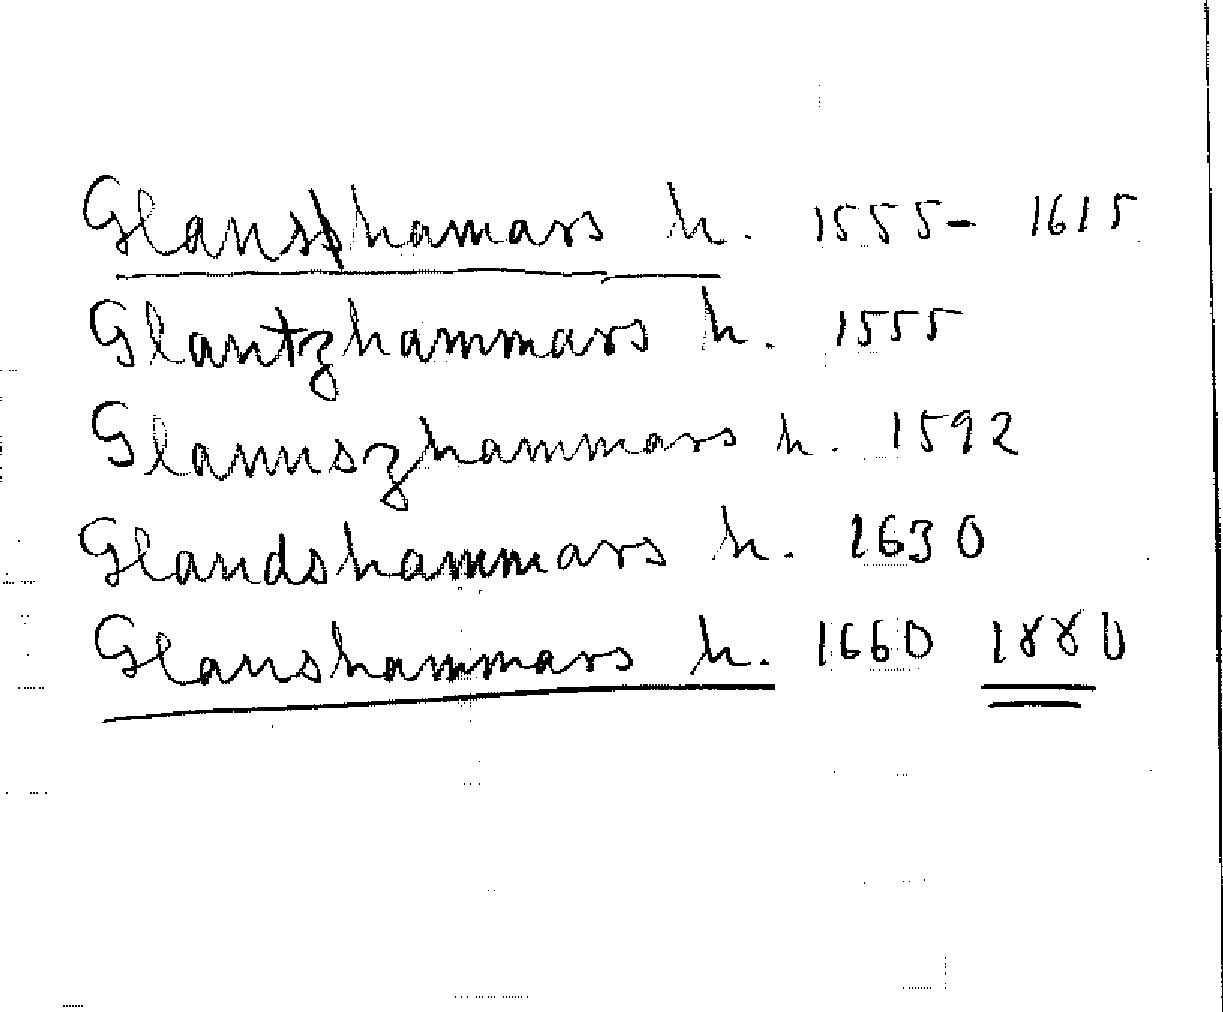 Glanshamars h. 1555- 1615
Glantzhammars h. 1555
Glannszhammars h. 1592
Glandshammars h. 1630
Glanshammars h. 1660 1880